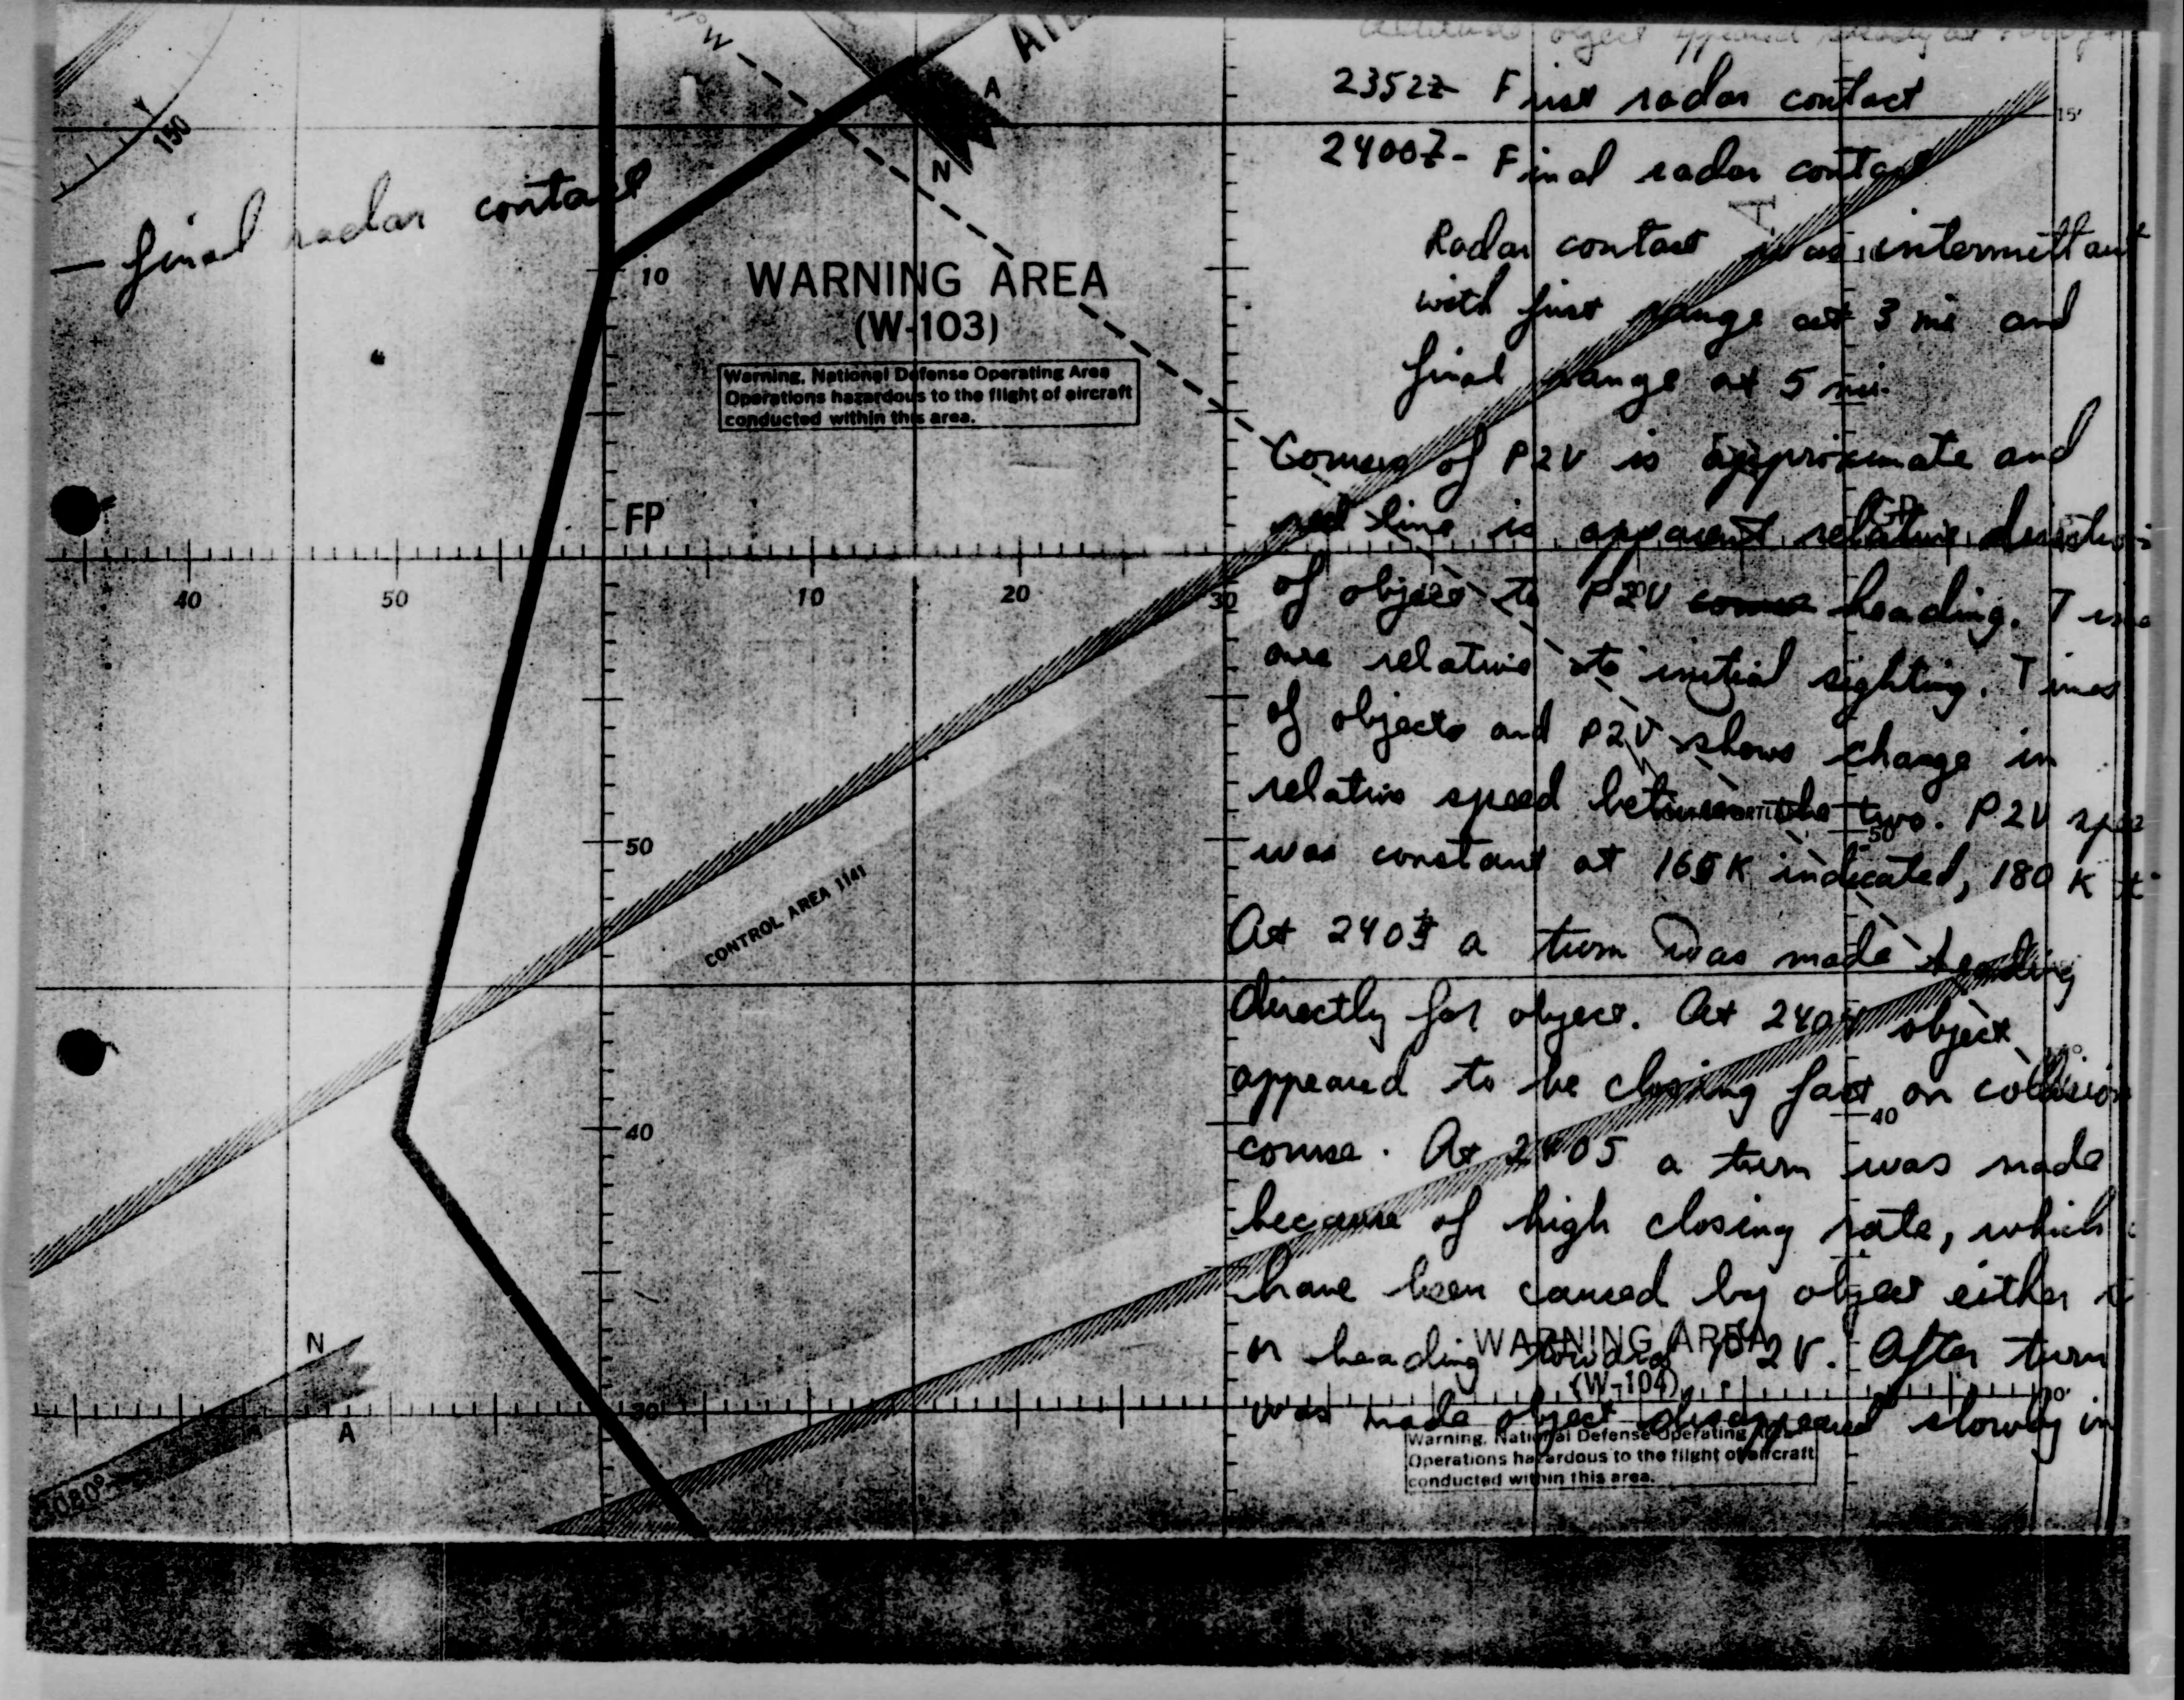 object appeared
2352Z - First radar contact
2400Z - Final radar contact
Radar contact was intermittant
with first range at 3 mi and
final range at 5 mi.
Course of P2V is approximate and
red line is apparent relative
of object to P2V course heading.
are relative to initial sighting. Times
of objects and P2V shows change in
relative speed between the two. P2V
was constant at 165K indicated, 180 K
At 2403 a turn was made heading
directly for object. At 2404 object
appeared to be closing fast on collision
course. At 2405 a turn was made
because of high closing rate, which
have been caused by object either
or heading toward P2V. After turn
was made object disappeared slowly in
— final radar contact
150
W
A
N
A
15'
10
WARNING AREA
(W-103)
Warning, National Defense Operating Area
Operations hazardous to the flight of aircraft
conducted within this area.
FP
40
50
10
20
30
50
50
CONTROL AREA 1141
40
40
N
A
30'
WARNING AREA
(W-104)
Warning, National Defense Operating Area
Operations hazardous to the flight of aircraft
conducted within this area.